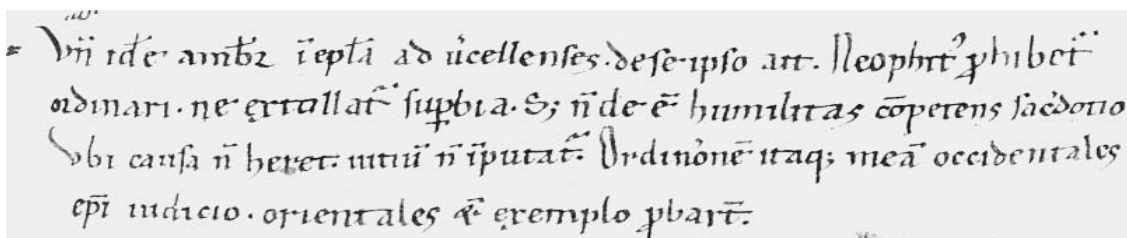 Vn̄ idē ambr̄ ī epl̄a ad ûcellenses. de se ipso ait. Neophit᷒ ꝓhibet᷑
ordinari. ne extollat᷑ suꝑbia. S; n̄ deē humilitas cōpetens sac̓dotio
Vbi causa n̄ heret. uitiū n̄ īputat᷑. Ordinōnē itaq; meā occidentales
ep̄i iudicio. orientales & exemplo ꝓbart̄.